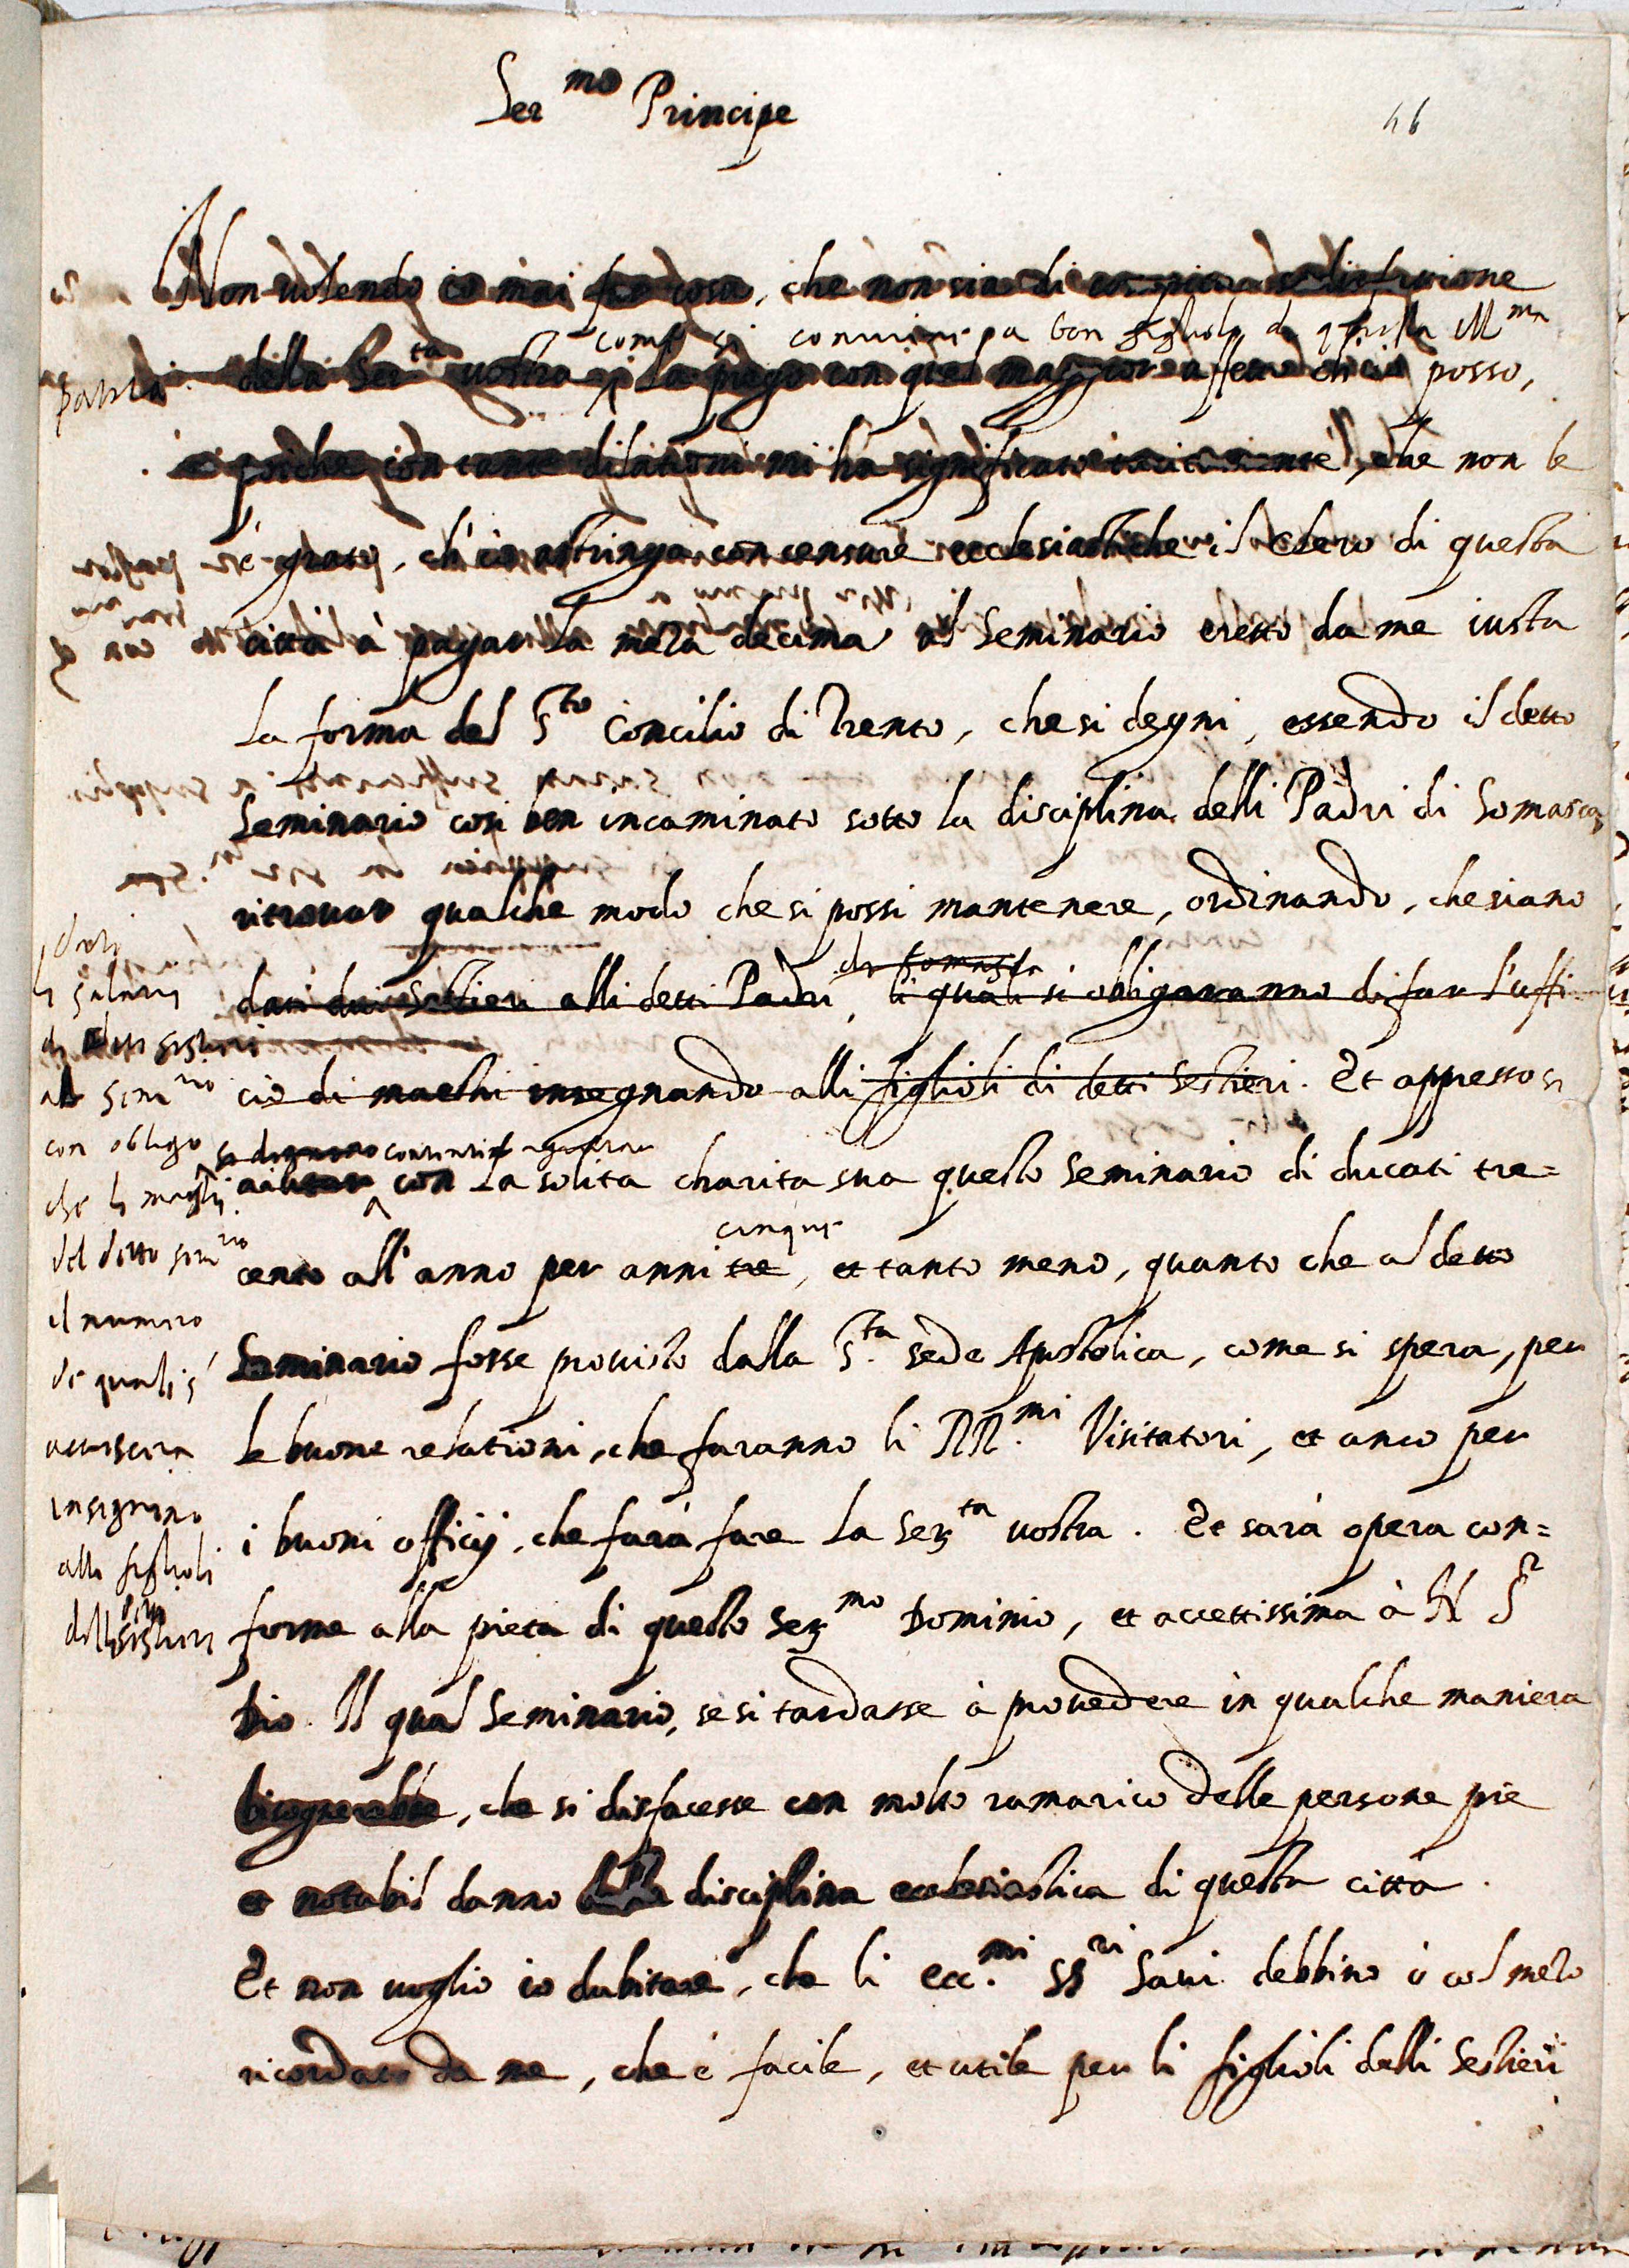 Ser^mo Principe
46
Non volendo io mai far cosa, che non sia di compita sodisfatione
come si conviene a bon figliolo di questa
patria
della Ser^ta vostra, la prego con quel maggior affetto che io posso,
poiche con tante dilationi mi ha significato tacitamente, che non le
è grato, ch'io astringa con censure ecclesiastiche il clero di questa
città à pagar la meza decima al Seminario eretto da me iusta
la forma del S^to Concilio di Trento, che si degni, essendo il detto
Seminario cosi ben incaminato sotto la disciplina delli Padri di Somasca,
ritrovar qualche modo che si possi mantenere, ordinando, che siano
di Somasca
dati dui Sestieri alli detti Padri, li quali si obligaranno di far l'uffi
cio di maestri insegnando alli figlioli di detti Sestieri. Et appresso si
si degnino
aiutar con la solita charita sua questo Seminario di ducati tre=
cinque
cento all'anno per anni tre, et tanto meno, quanto che al detto
Seminario fosse provisto dalla S.^ta Sede Apostolica, come si spera, per
le buone relationi, che faranno li RR.^mi Visitatori, et anco per
i buoni officij, che farà fare la Ser^ta vostra. Et sarà opera con=
forme alla pieta di questo Ser^mo Dominio, et accettissima à N S^r
Dio. Il qual Seminario, se si tardasse à provedere in qualche maniera
bisognerebbe, che si disfacesse con molto ramarico delle persone pie
et notabil danno della disciplina ecclesiastica di questa città.
Et non voglio io dubitare, che li ecc.^mi SS^ri Savi debbino ò col mezo
ricordato da me, che è facile, et utile per li figlioli delli Sestieri
li salarij
di detti sestieri
al Sem^rio
con obligo
che li maestri
del detto sem^rio
il numero
de quali s'
accrescera
insegnino
alli figlioli
delli sestieri